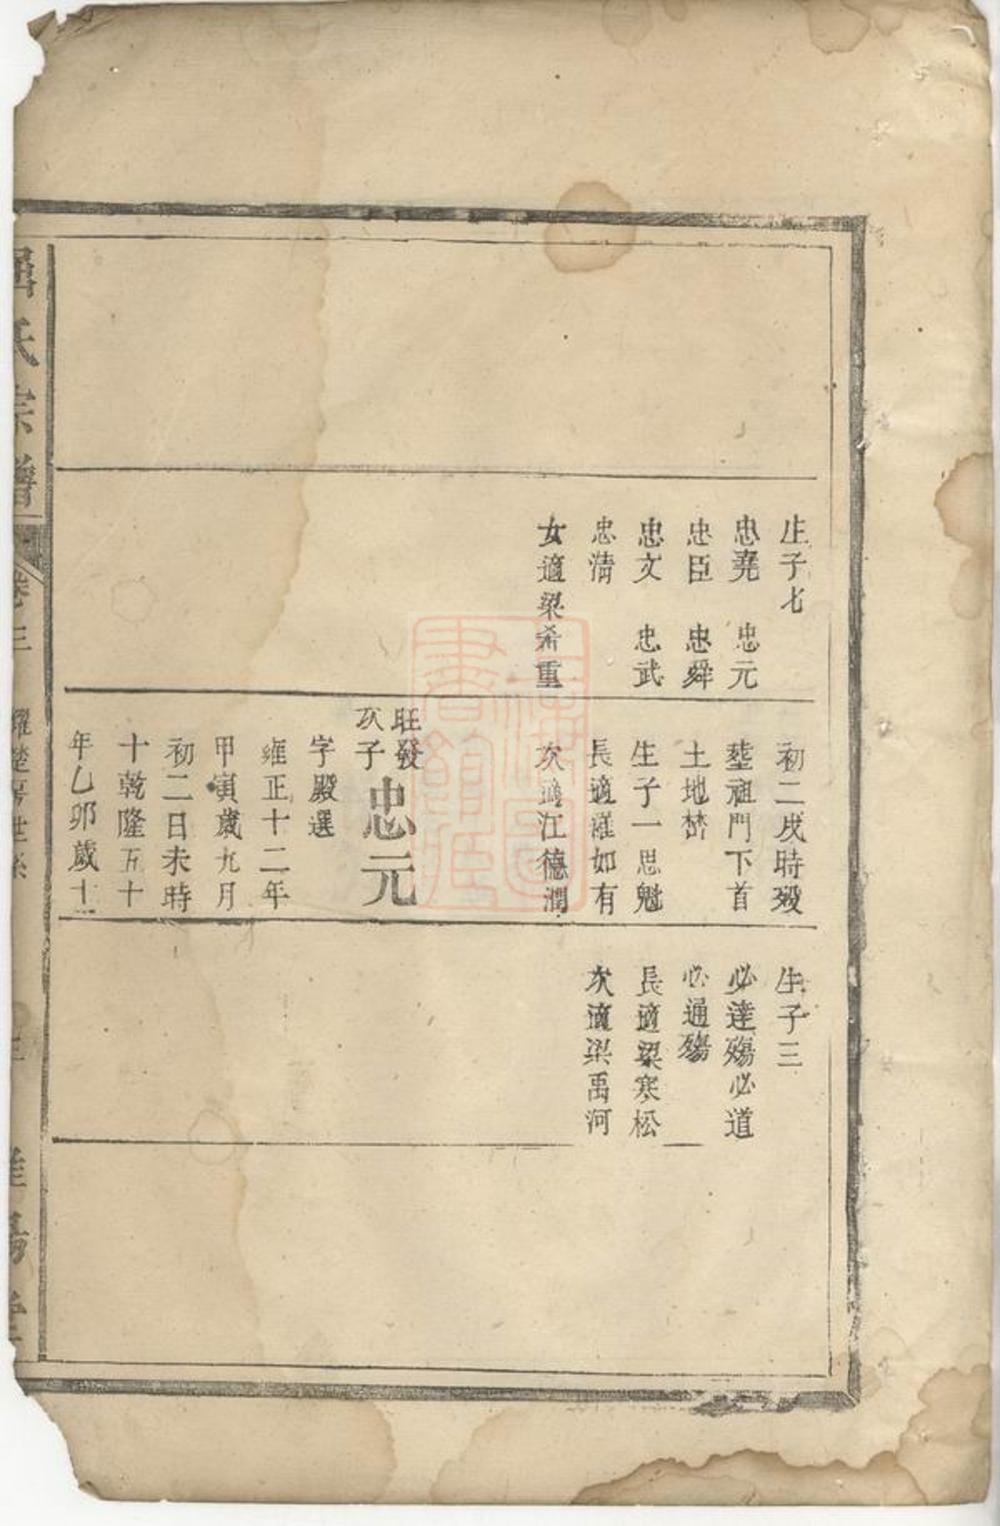 生子七
忠堯 忠元
忠臣 忠舜
忠文 忠武
忠清
女適梁希重
初二戌時歿
塟祖門下首
土地塝
生子一思魁
長適羅如有
次適江德潤
旺發
次子
忠元
字殿選
雍正十二年
甲寅歲九月
初二日未時
十乾隆五十
年乙卯歲十
生子三
必達殤必道
必通殤
長適梁寒松
次適梁禹河
氏宗譜
卷三
耀楚房世系